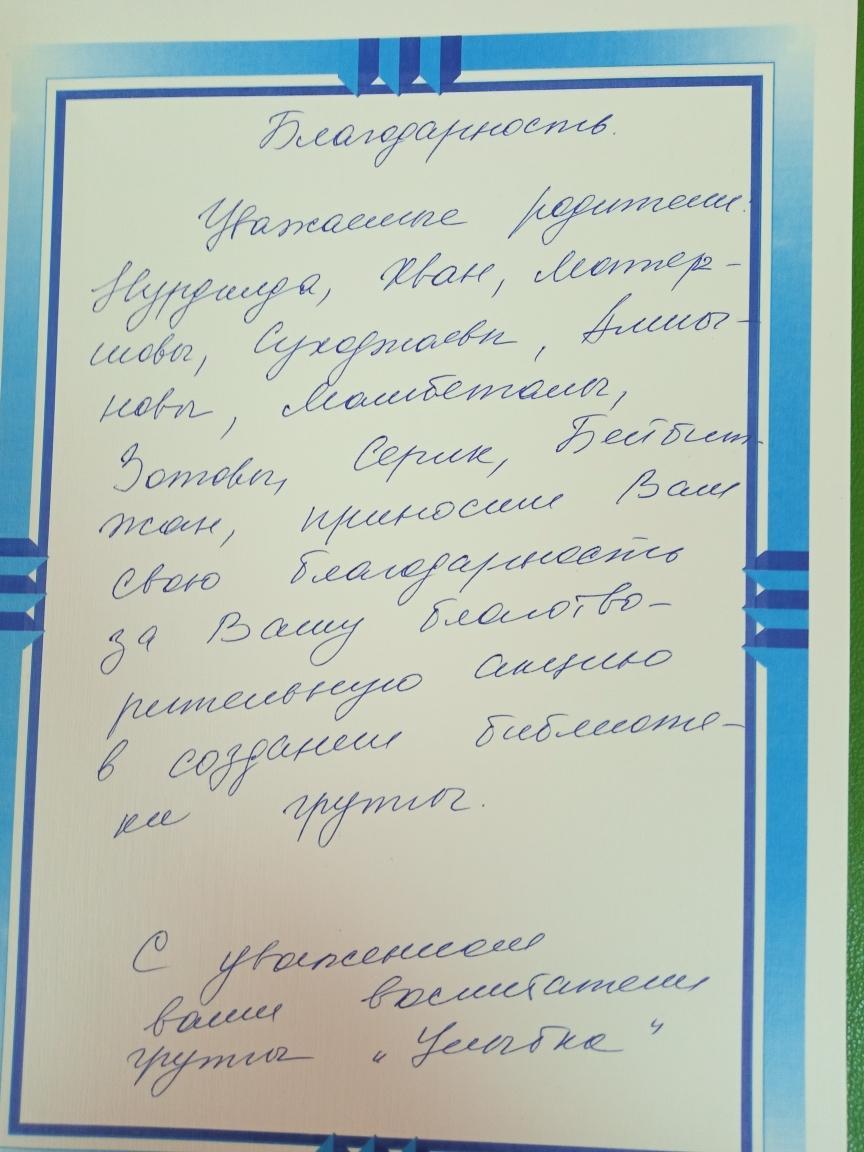 Благодарность.
Уважаемые родители:
Нурдилда, Хван,
Суходжаевы,
Мамбеталы,
Зотовы, Серик, Бейбит-
жан, приносим Вам
свою благодарность
за Вашу благотво-
рительную акцию
в создании библиоте-
ки группы.
С уважением
ваши воспитатели
группы "Улыбка"